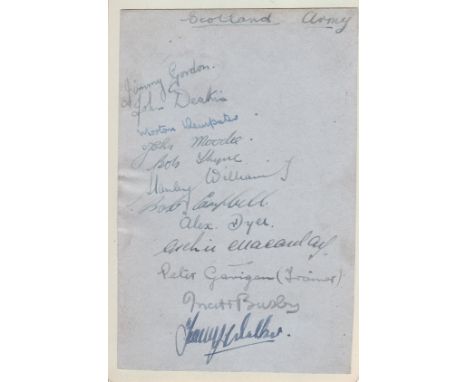 Scotland Army
Jimmy Gordon.
John Deakin
Morton Dempster
John Moodie.
Bob Thyne
Stanley Williams
Bob Campbell
Alex. Dyer.
Archie Macaulay
Peter Gavigan (Trainer)
Matt Busby
Tommy Walker.